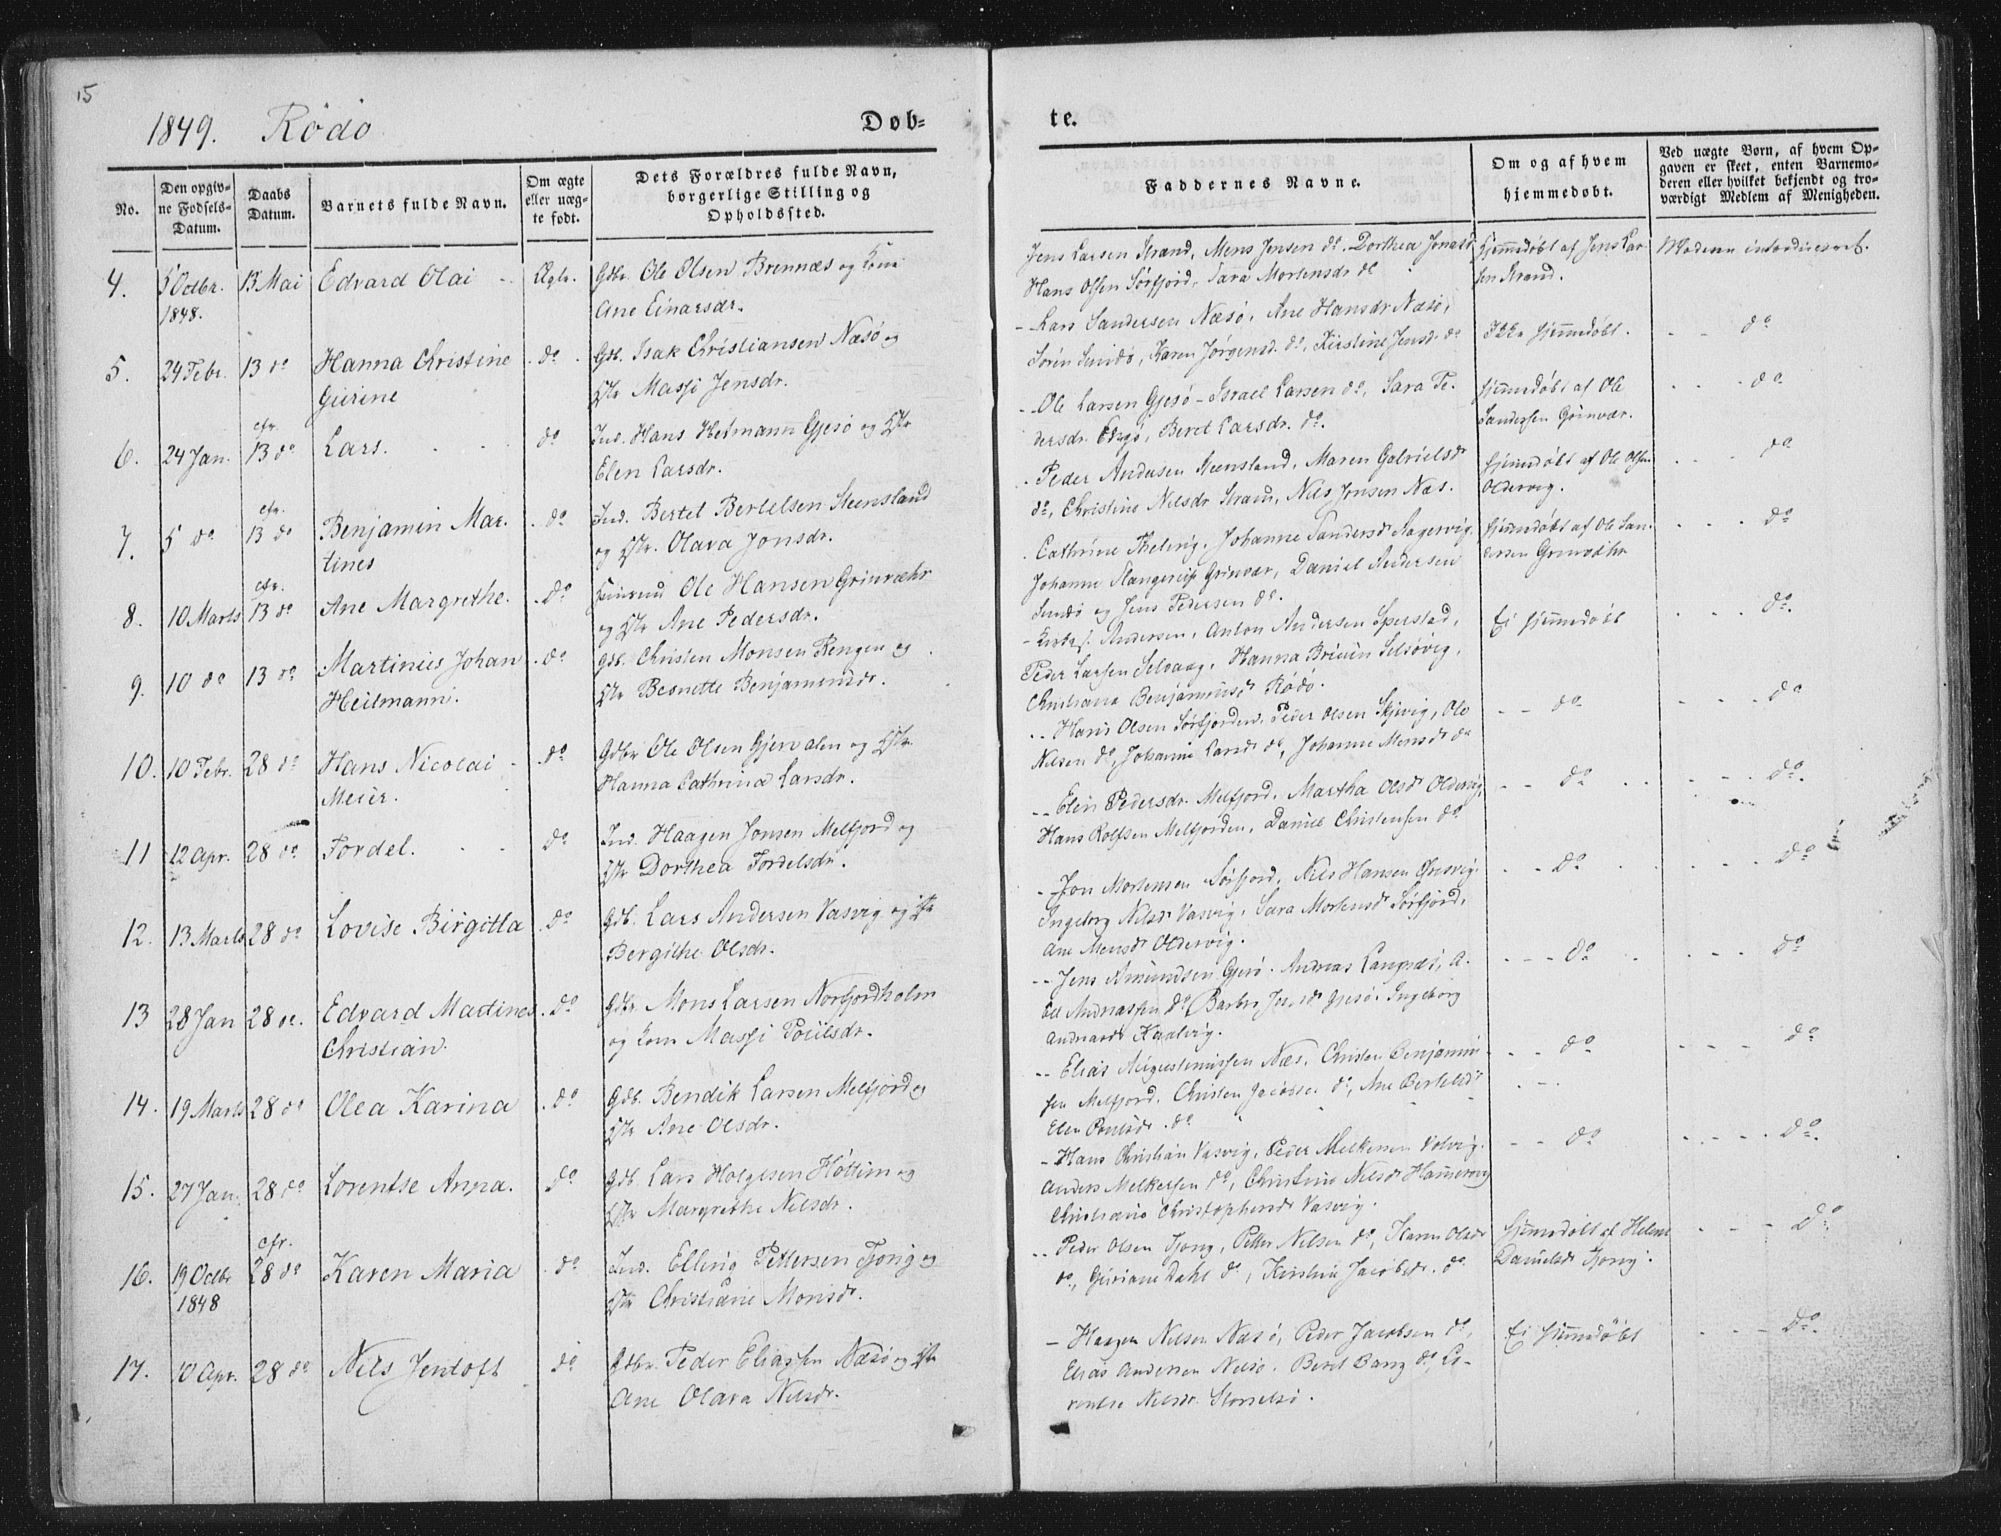 15
1849. Rödö
Døb-
te.
No.
Den opgiv-
ne Fødsels-
Datum.
Daabs
Datum.
Barnets fulde Navn.
Om ægte
eller uæg-
te født.
Dets Forældres fulde Navn,
borgerlige Stilling og
Opholdssted.
Faddernes Navne.
Om og af hvem
hjemmedøbt.
Ved uægte Børn, af hvem Op-
gaven er skeet, enten Barnemo-
deren eller hvilket bekjendt og tro-
værdigt Medlem af Menigheden.
4. 5 Octbr. 13 Mai Edvard Olai Ægte. Gdbr. Ole Olsen Brennæs og Kone
1848. Ane Einarsdr.
Jens Larsen Strand, Mons Jensen do. Dorthea Jonasd
Hans Olsen Sörfjord, Sara Mortensdr do
Hjemmedöbt af Jens Lar-
sen Strand.
Moderen introduceret.
5. 24 Febr. 13 do Hanna Christine do Gdb. Isak Christiansen Næsö og
Gurine Hstr Massi Jensdr.
Lars Sandersen Næsö, Ane Hansdr Næsö,
Sören Sundö, Karen Jörgensd. do, Kirstine Jensd. do
Ikke hjemmedöbt. do
6. 24 Jan. cfr. 13 do Lars. do Ind. Hans Heitmann Gjesö og Hstr
Elen Larsdr.
Ole Larsen Gjesö - Israel Larsen do, Sara Pe-
dersdr. Engö, Beret Larsdr. do.
hjemmedöbt af Ole
Sandersen Grönvær. do
7. 5 do cfr. 13 do Benjamin Mar- do Ind. Bertel Bertelsen Steensland
tines og Hstr. Olava Jonsdr.
Peder Andersen Steensland, Maren Gabrielsdr
do, Christine Nilsdr Straum, Nils Jonsen Næs.
hjemmedöbt af Ole Olsen
Oldervig. do
8. 10 Marts cfr. 13 do Ane Margrethe. do Ole Hansen Grinvæhr
og Hstr Ane Pedersdr.
Cathrine Johanne Sandersd Sagervig,
Johanne Grinvær, Daniel Andersen
Sundö og Jens Pedersen do.
hjemmedöbt af Ole San-
dersen Grinvæhr do
9. 10 do 13 do Martinus Johan do Gdb. Christen Monsen Rengen og
Heitmann. Hstr Besnette Benjaminsdr.
Andersen, Anton Andersen Sperstad,
Peder Larsen Selvaag, Hanna Selsövig,
Christiana Benjaminsdr Rödö.
Ei hjemmedöbt do.
10. 10 Febr. 28 do Hans Nicolai do Gdbr Ole Olsen Gjervalen og Hstr.
Meier. Hanna Cathrina Larsdr.
Hans Olsen Sörfjorden, Peder Olsen Skjevig, Ole
Nilsen do, Johanne Larsdr do, Johanne Monsdr do
do do
11 12 Apr. 28 do Tordel. do Ind. Haagen Jonsen Melfjord og
Hstr Dorthea Tordelsdr.
Elen Pedersdr. Melfjord, Martha Olsdr Oldervig,
Hans Rolfsen Melfjorden, Daniel Christensen do
do do.
12. 13 Marts 28 do Lovise Birgitta do Gdb. Lars Andersen Vasvig og Hstr
Bergithe Olsdr.
Jon Mortensen Sörfjord, Nils Hansen
Ingeborg Nilsdr Vasvig, Sara Mortensdr Sörfjord,
Ane Monsdr Oldervig.
do do
13 28 Jan 28 do. Edvard Martines do Gdbr Mons Larsen Norfjordholm
Christian. og Kone Massi Poulsdr.
Jens Amundsen Gjesö, Andreas Langnæs, A-
Andreassen do, Barbro Jensdr Gjesö, Ingeborg
Andreasdr
do do
14. 19 Marts 28 do Olea Karina do Gdb. Bendik Larsen Melfjord og
Hstr Ane Olsdr.
Elias Augustinussen Næs, Christen Benjamin-
sen Melfjord, Christen Jacobsen do, Ane Bertelsdr
Elen Poulsdr. do
do do
15. 27 Jan. 28 do Lorentse Anna. do Gdb. Lars Holgesen Höttim og
Hstr Margrethe Nilsdr.
Hans Christian Vasvig, Peder Melkersen Valvig,
Anders Melkersen do, Christine Nilsdr
Christiane Christophersdr Vasvig.
do do.
16. 19 Octbr cfr. 28 do Karen Maria do. Ind. Elling Pettersen Tjong og
1848 Hstr Christiane Monsdr.
Peder Olsen Tjong, Peter Nilsen do, Karen Olsdr
do., Guriane Dahl do, Kirstine Jacobsdr. do
hjemmedöbt af Helene
Danielsdr Tjong. do
17. 10 Apr. 28 do Nils Jentoft do Gdbr. Peder Eliassen Næsö og Hstr
Ane Olava Nilsdr.
Haagen Nilsen Næsö, Peder Jacobsen do,
Elias Andersen Nelsö, Beret Bang do, Lo-
rentse Nilsdr. Storselsö.
Ei hjemmedöbt do.